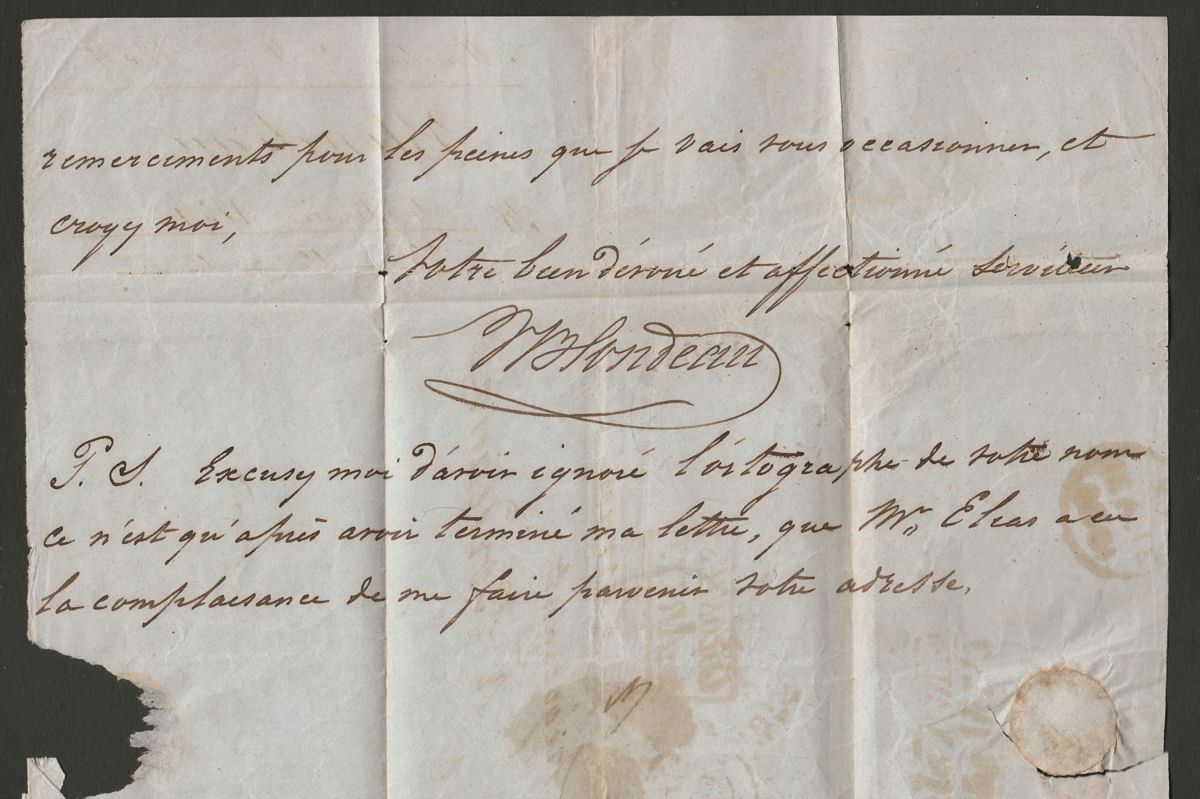 remerciments pour les peines que je vais vous occasionner, et
croyez moi,
Votre bien dévoué et affectionné serviteur
Blondeau
P. S. Excusez moi d'avoir ignoré l'ortographe de votre nom
ce n'est qu'après avoir terminé ma lettre, que Mr. Elias a eu
la complaisance de me faire parvenir votre adresse.